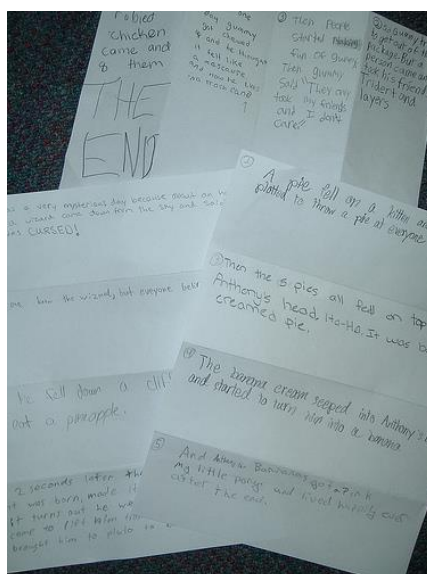 robied
chicken
came and
8 them
THE
END
one
day gummy
got chewed
& and he thought
it felt like
a
and now he has
no more cane
1
③ Then People
started making
fun of gummy
Then gummy
Said They any
took my friends
and I don't
care!!
to get out of the
package. But a
person came and
took his friend
trident and
layers
was a very mysterious day because
wizard came down from the sky and said
was CURSED!
the wizard, but everyone
he fell down a
out a pineapple.
2 seconds later the
it was born, made it
It turns out he
come to him
brought him to pluto to
②
A pie fell on a kitten and
plotted to throw a pie at everyone
③ Then the 5 pies all fell on top
Anthony's head. Ha-Ha. It was b
creamed pie.
④ The banana cream seeped into Anthony's
and started to turn him into a banana
⑤
And Anthony Bananas got a pink
my little pony and lived happily ever
after The end.